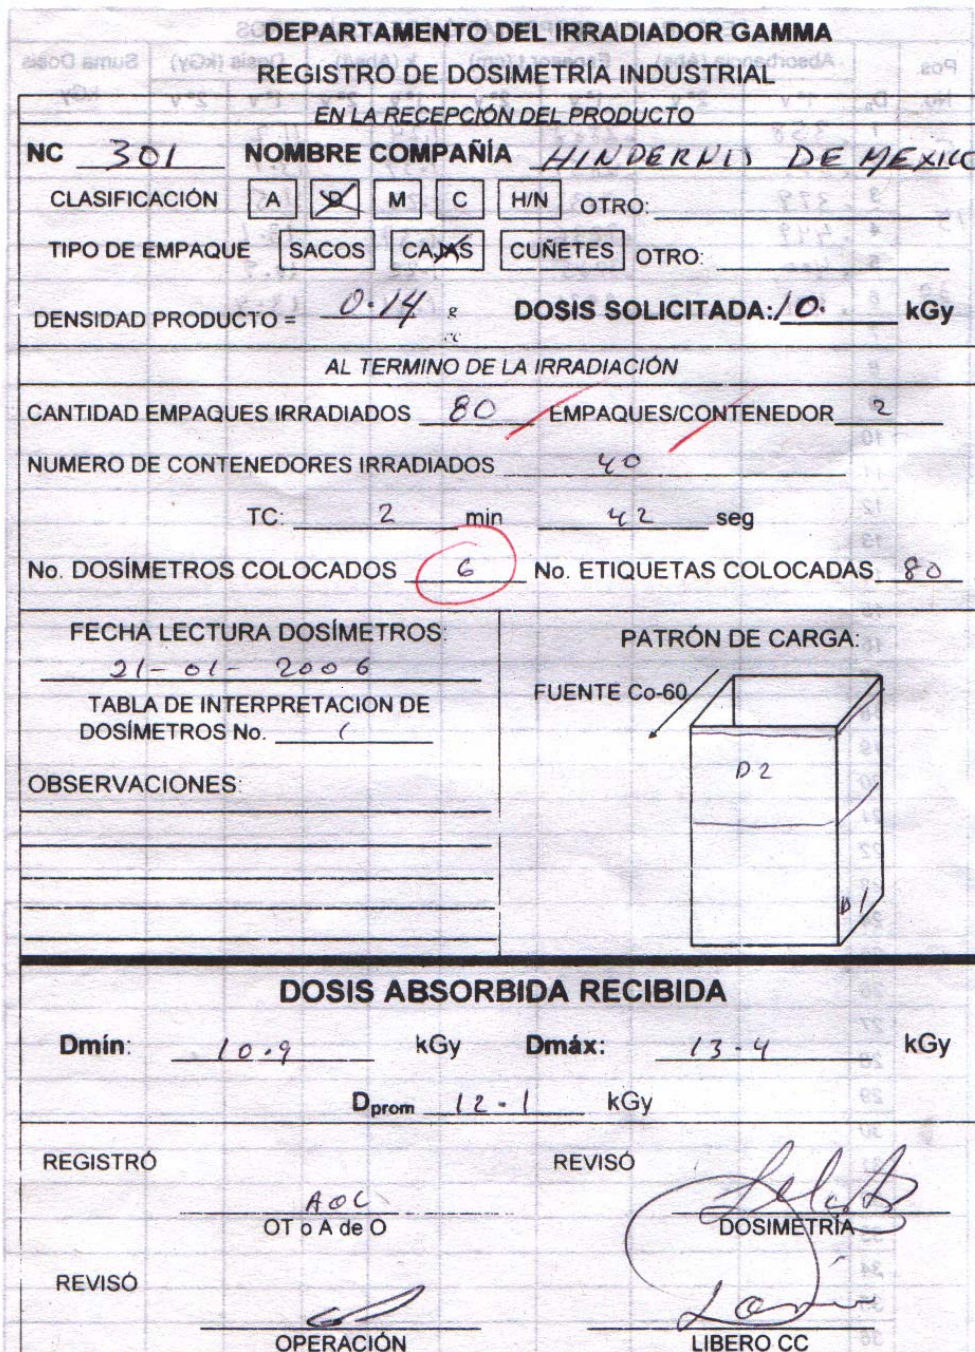 DEPARTAMENTO DEL IRRADIADOR GAMMA
REGISTRO DE DOSIMETRÍA INDUSTRIAL
EN LA RECEPCIÓN DEL PRODUCTO
NC 301 NOMBRE COMPAÑÍA DE MEXICO
CLASIFICACIÓN A D M C H/N OTRO:
TIPO DE EMPAQUE SACOS CAJAS CUÑETES OTRO:
DENSIDAD PRODUCTO = 0.14 g/cc DOSIS SOLICITADA: 10. kGy
AL TERMINO DE LA IRRADIACIÓN
CANTIDAD EMPAQUES IRRADIADOS 80 EMPAQUES/CONTENEDOR 2
NUMERO DE CONTENEDORES IRRADIADOS 40
TC: 2 min 42 seg
No. DOSÍMETROS COLOCADOS 6 No. ETIQUETAS COLOCADAS 80
FECHA LECTURA DOSÍMETROS:
21-01-2006
TABLA DE INTERPRETACION DE
DOSÍMETROS No. 1
OBSERVACIONES:
PATRÓN DE CARGA:
FUENTE Co-60
D2
D1
DOSIS ABSORBIDA RECIBIDA
Dmín: 10.9 kGy Dmáx: 13.4 kGy
Dprom 12.1 kGy
REGISTRÓ REVISÓ
AOC
OT o A de O DOSIMETRÍA
REVISÓ
OPERACIÓN LIBERO CC